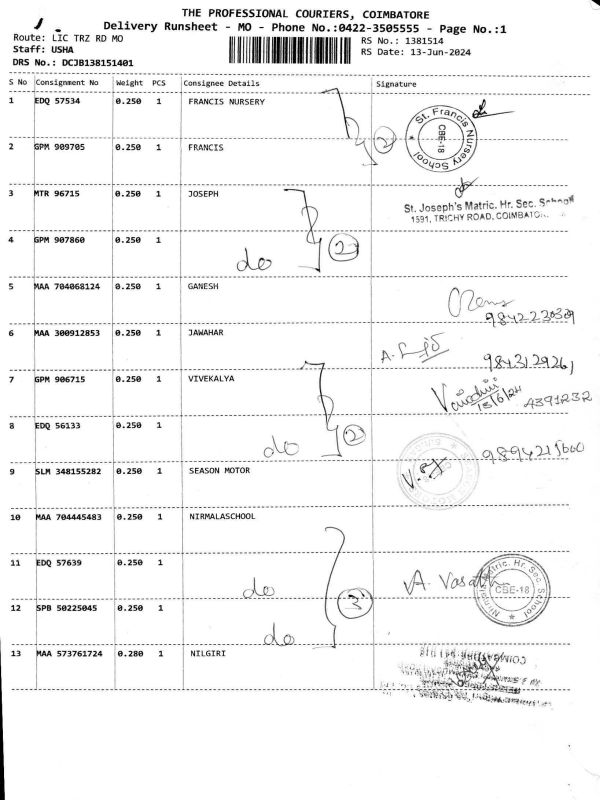 THE PROFESSIONAL COURIERS, COIMBATORE
Delivery Runsheet - MO - Phone No.:0422-3505555 - Page No.:1
Route: LIC TRZ RD MO
RS No.: 1381514
Staff: USHA
RS Date: 13-Jun-2024
DRS No.: DCJB138151401
S No Consignment No Weight PCS Consignee Details Signature
1 EDQ 57534 0.250 1 FRANCIS NURSERY
St. Francis Nursery School CBE-18
2 GPM 909705 0.250 1 FRANCIS 2
3 MTR 96715 0.250 1 JOSEPH
St. Joseph's Matric. Hr. Sec. School
1591, TRICHY ROAD, COIMBATO
4 GPM 907860 0.250 1 do 2
5 MAA 704068124 0.250 1 GANESH
9842220309
6 MAA 300912853 0.250 1 JAWAHAR
A.
9843129261
7 GPM 906715 0.250 1 VIVEKALYA
13/6/24 A391232
8 EDQ 56133 0.250 1 do 2
9894215600
9 SLM 348155282 0.250 1 SEASON MOTOR
10 MAA 704445483 0.250 1 NIRMALASCHOOL
11 EDQ 57639 0.250 1 do
A. Vasa
Matric. Hr. Sec. School CBE-18
12 SPB 50225045 0.250 1 do 3
13 MAA 573761724 0.280 1 NILGIRI